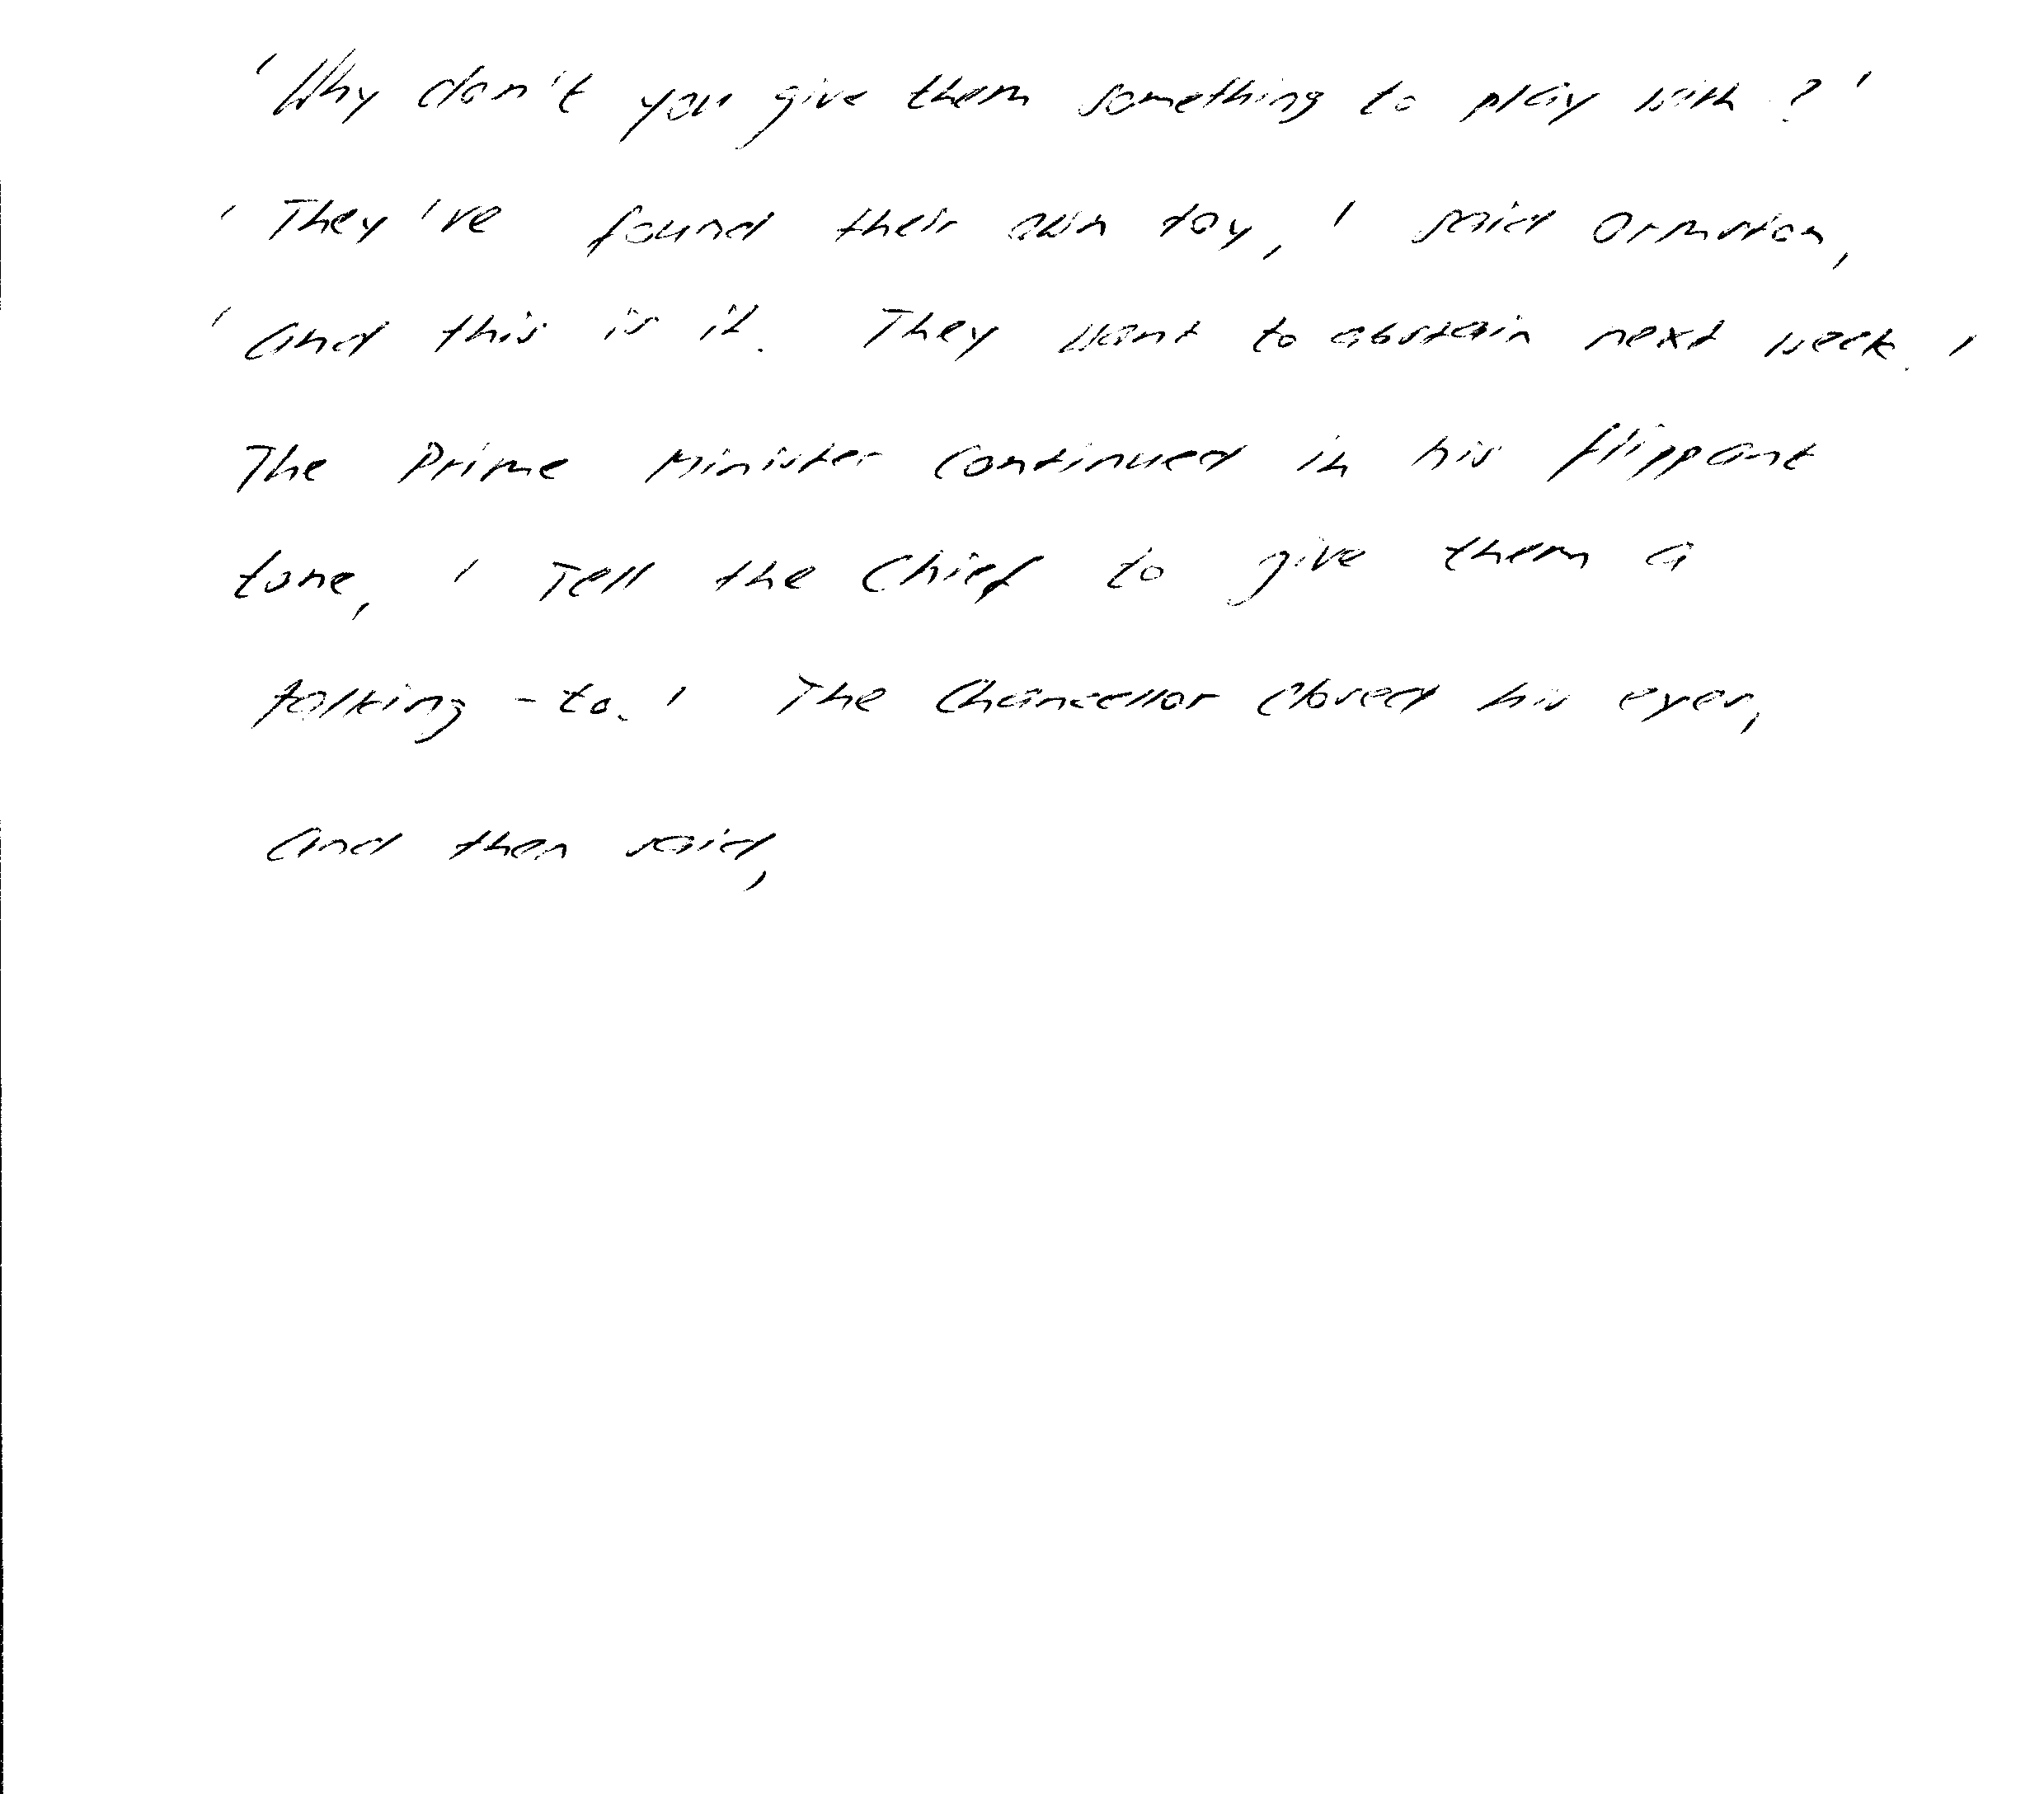 'Why don't you give them something to play with?'
'They've found their own toy,' said Ormston,
'and this is it. They want to abstain next week.'
The Prime Minister continued in his flippant
tone, 'Tell the Chief to give them a
talking-to.' The Chancellor closed his eyes,
and then said,